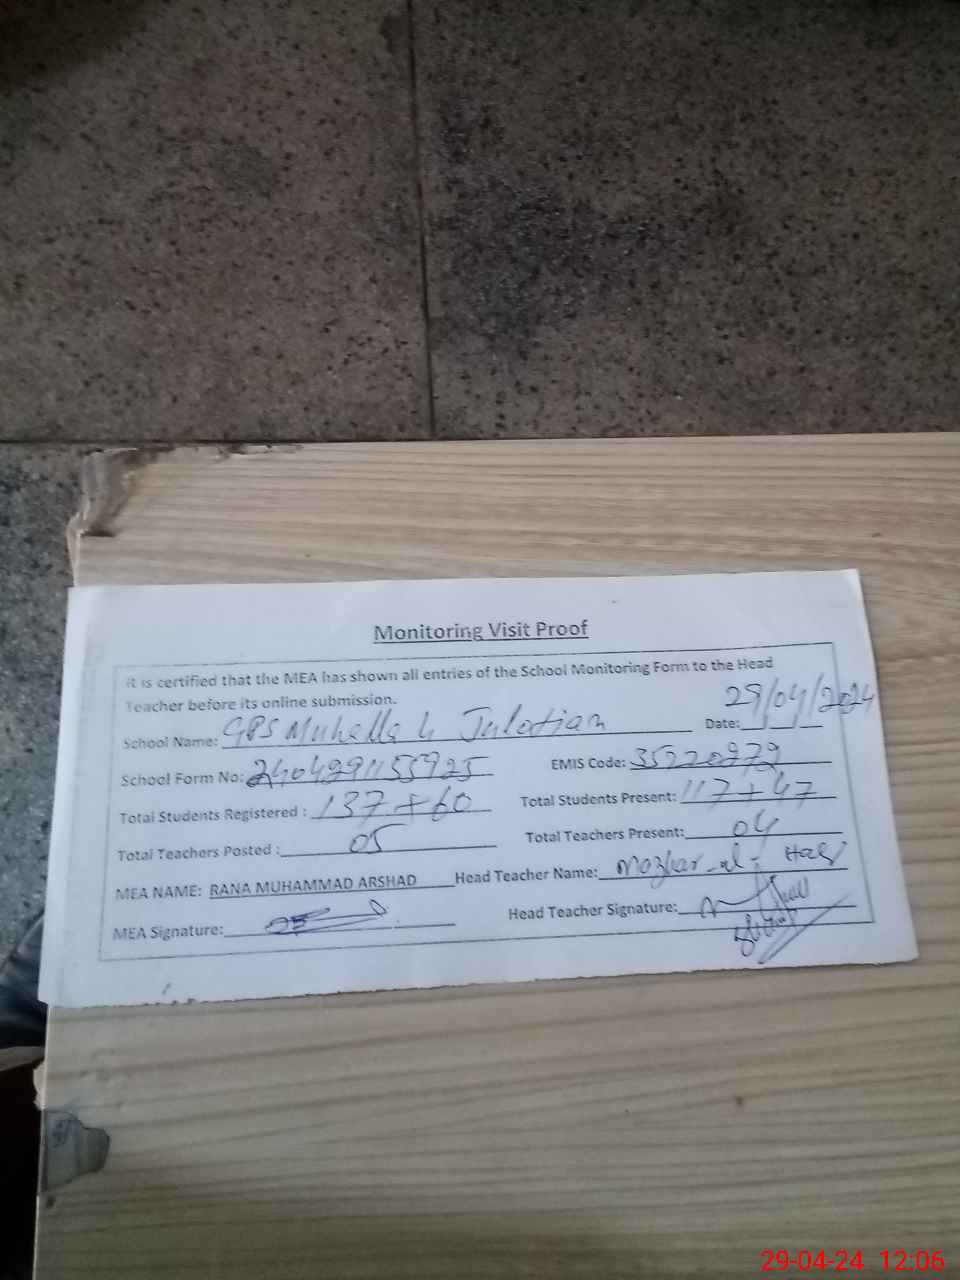 Monitoring Visit Proof
It is certified that the MEA has shown all entries of the School Monitoring Form to the Head
Teacher before its online submission.
School Name: GPS Muhella Date: 29/04/2024
School Form No: EMIS Code: 35220979
Total Students Registered : 137+60 Total Students Present: 117+47
Total Teachers Posted : 05 Total Teachers Present: 04
MEA NAME: RANA MUHAMMAD ARSHAD Head Teacher Name: Mazhar-ul-Haq
MEA Signature: Head Teacher Signature:
29-04-24 12:06